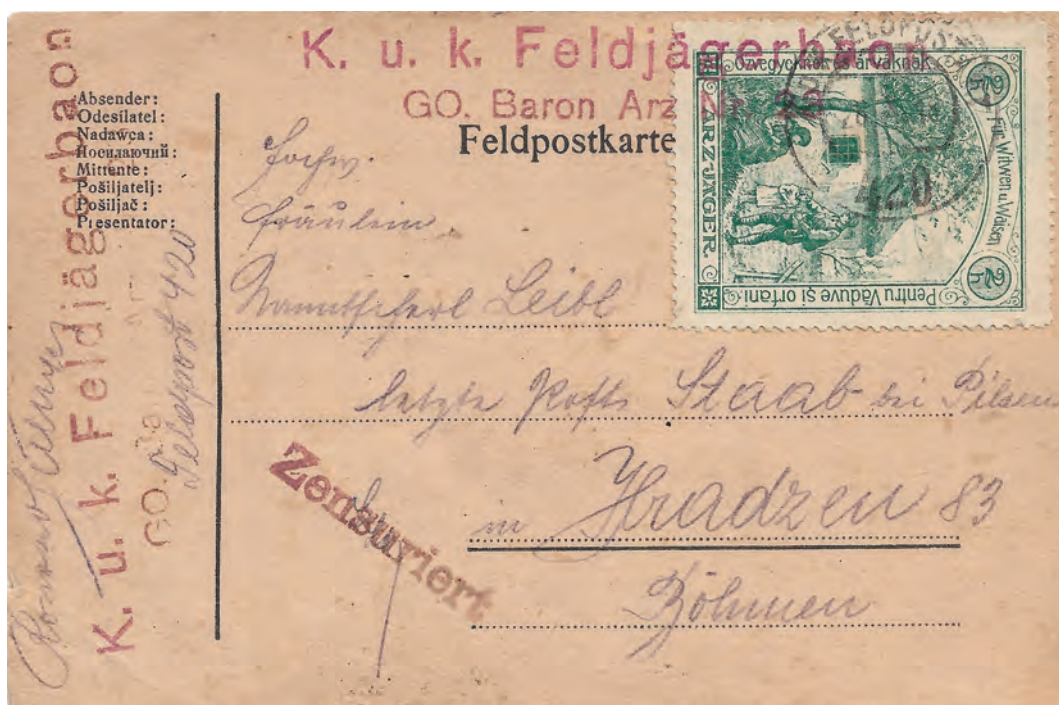 K. u. k. Feldjägerbaon
GO. Baron Arz Nr.
Feldpostkarte
Absender:
Odesilatel:
Nadawca:
Посилаючий:
Mittente:
Pošiljatelj:
Pošiljač:
Presentator:
K. u. k. Feldjägerbaon
GO.
Feldpost 420
Fräulein
Leibl
letzte Post Staab bei Pilsen
in Hradzen 83
Böhmen
Zensuriert
FELDPOST
420
Özvegyeknek és árváknak
Für Witwen u. Waisen
Pentru Văduve și orfani
ARZ-JÄGER
2h
2h